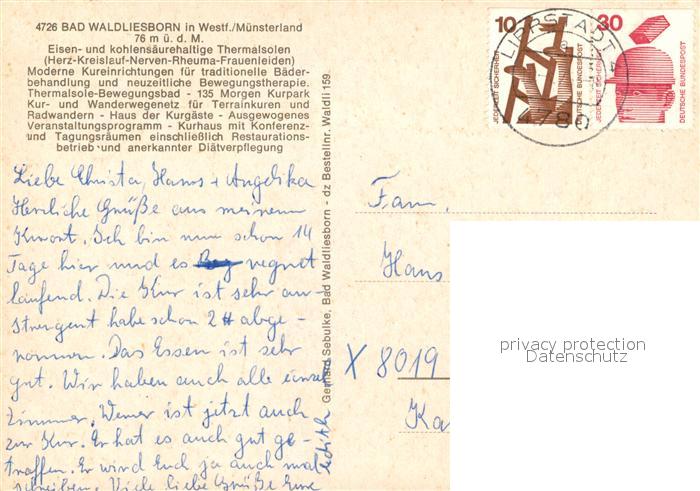 4726 BAD WALDLIESBORN in Westf./Münsterland
76 m ü. d. M.
Eisen- und kohlensäurehaltige Thermalsolen
(Herz-Kreislauf-Nerven-Rheuma-Frauenleiden)
Moderne Kureinrichtungen für traditionelle Bäder-
behandlung und neuzeitliche Bewegungstherapie.
Thermalsole-Bewegungsbad - 135 Morgen Kurpark
Kur- und Wanderwegenetz für Terrainkuren und
Radwandern - Haus der Kurgäste - Ausgewogenes
Veranstaltungsprogramm - Kurhaus mit Konferenz-
und Tagungsräumen einschließlich Restaurations-
betrieb und anerkannter Diätverpflegung
Liebe Christa, Hanns + Angelika
Herzliche Grüße aus meinem
Kurort. Ich bin nun schon 14
Tage hier und es regnet
laufend. Die Kur ist sehr an-
strengent habe schon 2 ℔ abge-
nommen. Das Essen ist sehr
gut. Wir haben auch alle einzel
Zimmer. Werner ist jetzt auch
zur Kur. Er hat es auch gut ge-
troffen. Er wird Euch ja auch mal
schreiben. Viele liebe Grüße Eure
Edith
Gerhard Sebulke, Bad Waldliesborn - dz Bestellnr. Waldli 159
10
JEDERZEIT SICHERHEIT
DEUTSCHE BUNDESPOST
30
JEDERZEIT SICHERHEIT
DEUTSCHE BUNDESPOST
LIPPSTADT 4
478
Fam.
Hans
X 8019
Ka
privacy protection
Datenschutz